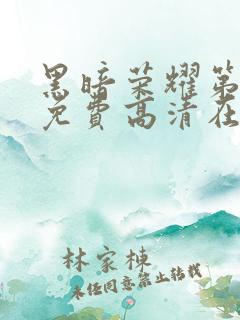 黑暗荣耀第
免费高清在
林家栋
未经同意禁止转载